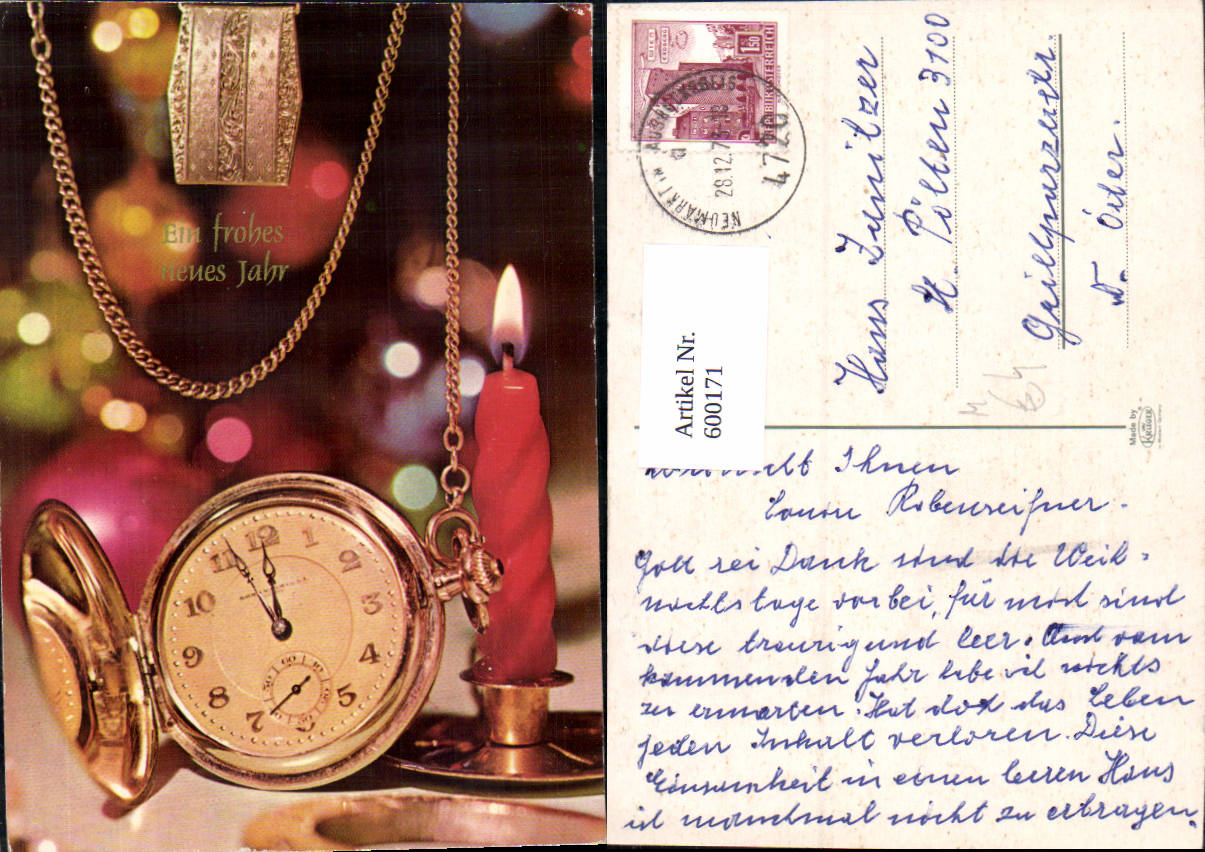 Ein frohes
neues Jahr
11 12 1 2 3 4 5 7 8 9 10
REPUBLIK ÖSTERREICH
1.50
NEUMARKT IM HAUSRUCKKREIS
a
28.12.7
4720
Artikel Nr.
600171
Hans
St. Pölten 3100
Grillparzerstr.
N. Öster.
Made by
KRÜGER
Ihnen
Gott sei Dank sind die Weih-
nachtstage vorbei, für mich sind
diese traurig und leer. Und vom
kommenden Jahr habe ich nichts
zu erwarten. Hat doch das Leben
jeden Inhalt verloren. Diese
Einsamkeit in einen leeren Haus
ist manchmal nicht zu ertragen.